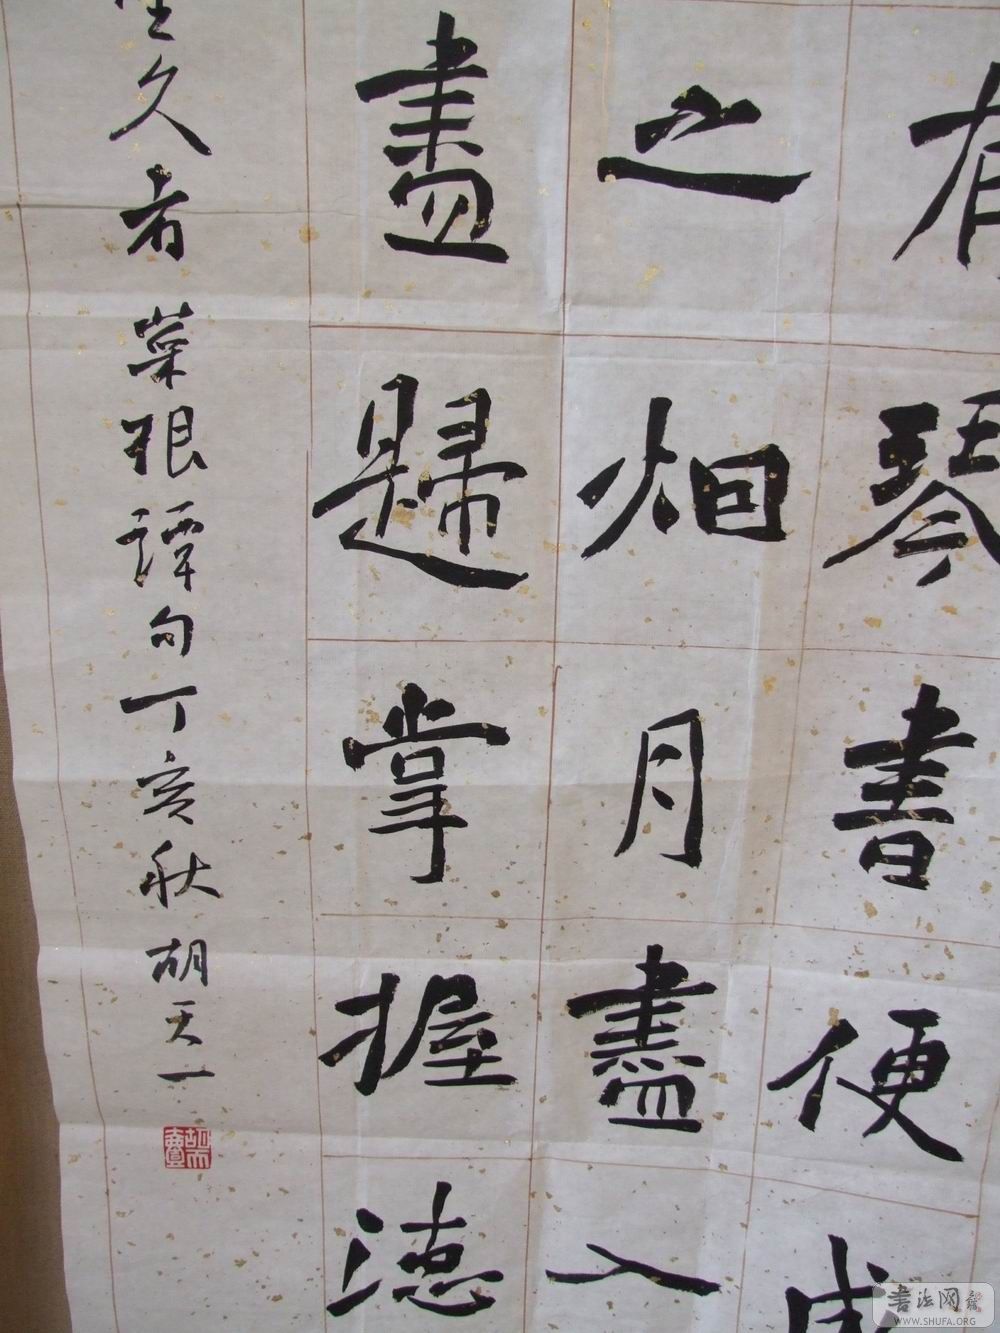 有琴書便成
之烟月盡入
盡歸掌握德
久者菜根譚句丁亥秋胡天一
书法网
WWW.SHUFA.ORG